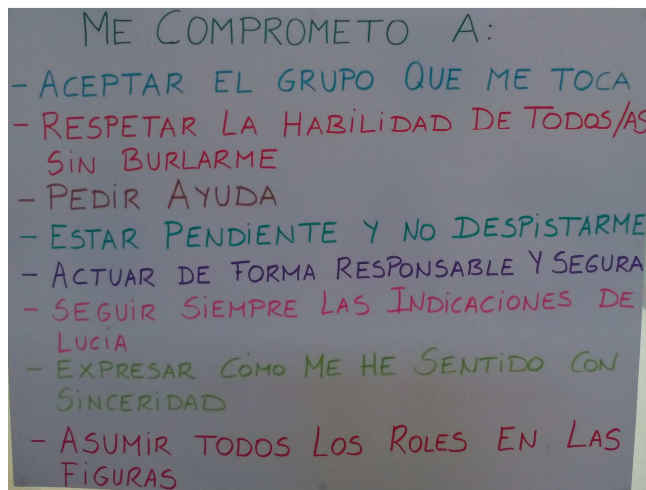 ME COMPROMETO A:
- ACEPTAR EL GRUPO QUE ME TOCA
- RESPETAR LA HABILIDAD DE TODOS/AS
SIN BURLARME
- PEDIR AYUDA
- ESTAR PENDIENTE Y NO DESPISTARME
- ACTUAR DE FORMA RESPONSABLE Y SEGURA
- SEGUIR SIEMPRE LAS INDICACIONES DE
LUCIA
- EXPRESAR CÓMO ME HE SENTIDO CON
SINCERIDAD
- ASUMIR TODOS LOS ROLES EN LAS
FIGURAS